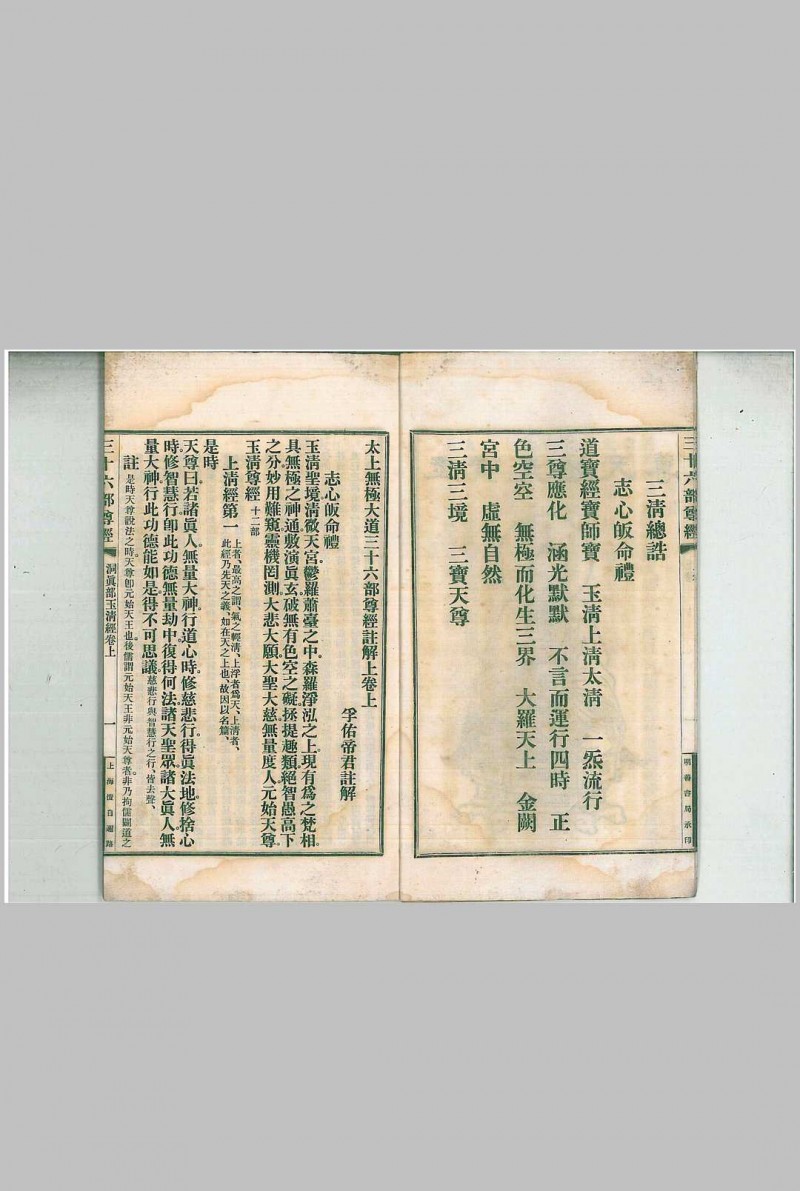 三十六部尊經
明善書局承印
三清總誥
志心皈命禮
道寶經寶師寶　玉清上清太清　一炁流行
三尊應化　涵光默默　不言而運行四時　正
色空空　無極而化生三界　大羅天上　金闕
宮中　虛無自然
三清三境　三寶天尊
太上無極大道三十六部尊經註解上卷上
孚佑帝君註解
志心皈命禮
玉清聖境清微天宮。鬱羅蕭臺之中。森羅淨泓之上。現有為之梵相。
具無極之神通。敷演眞玄。破無有色空之礙。拯提趣類。絕智愚高下
之分。妙用難窺。靈機罔測。大悲大願。大聖大慈。無量度人。元始天尊
玉清尊經 十二部
上清經第一 上者、最高之謂、氣之輕清、上浮者爲天、上清者、
此經乃先天之義、如在天之上也、故因以名篇、
是時
天尊曰。若諸眞人。無量大神。行道心時。修慈悲行。得眞法地。修捨心
時。修智慧行。卽此功德。無量劫中。復得何法。諸天聖眾。諸大眞人。無
量大神。行此功德。能如是得。不可思議。慈悲行與智慧行之行、皆去聲、
註 是時天尊說法之時。天尊卽元始天王也。後儒謂元始天王非元始天尊者。非。乃拘儒闢道之
三十六部尊經
洞眞部玉清經卷上
一